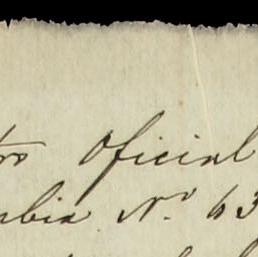 tro Oficial
mbia N.º 63